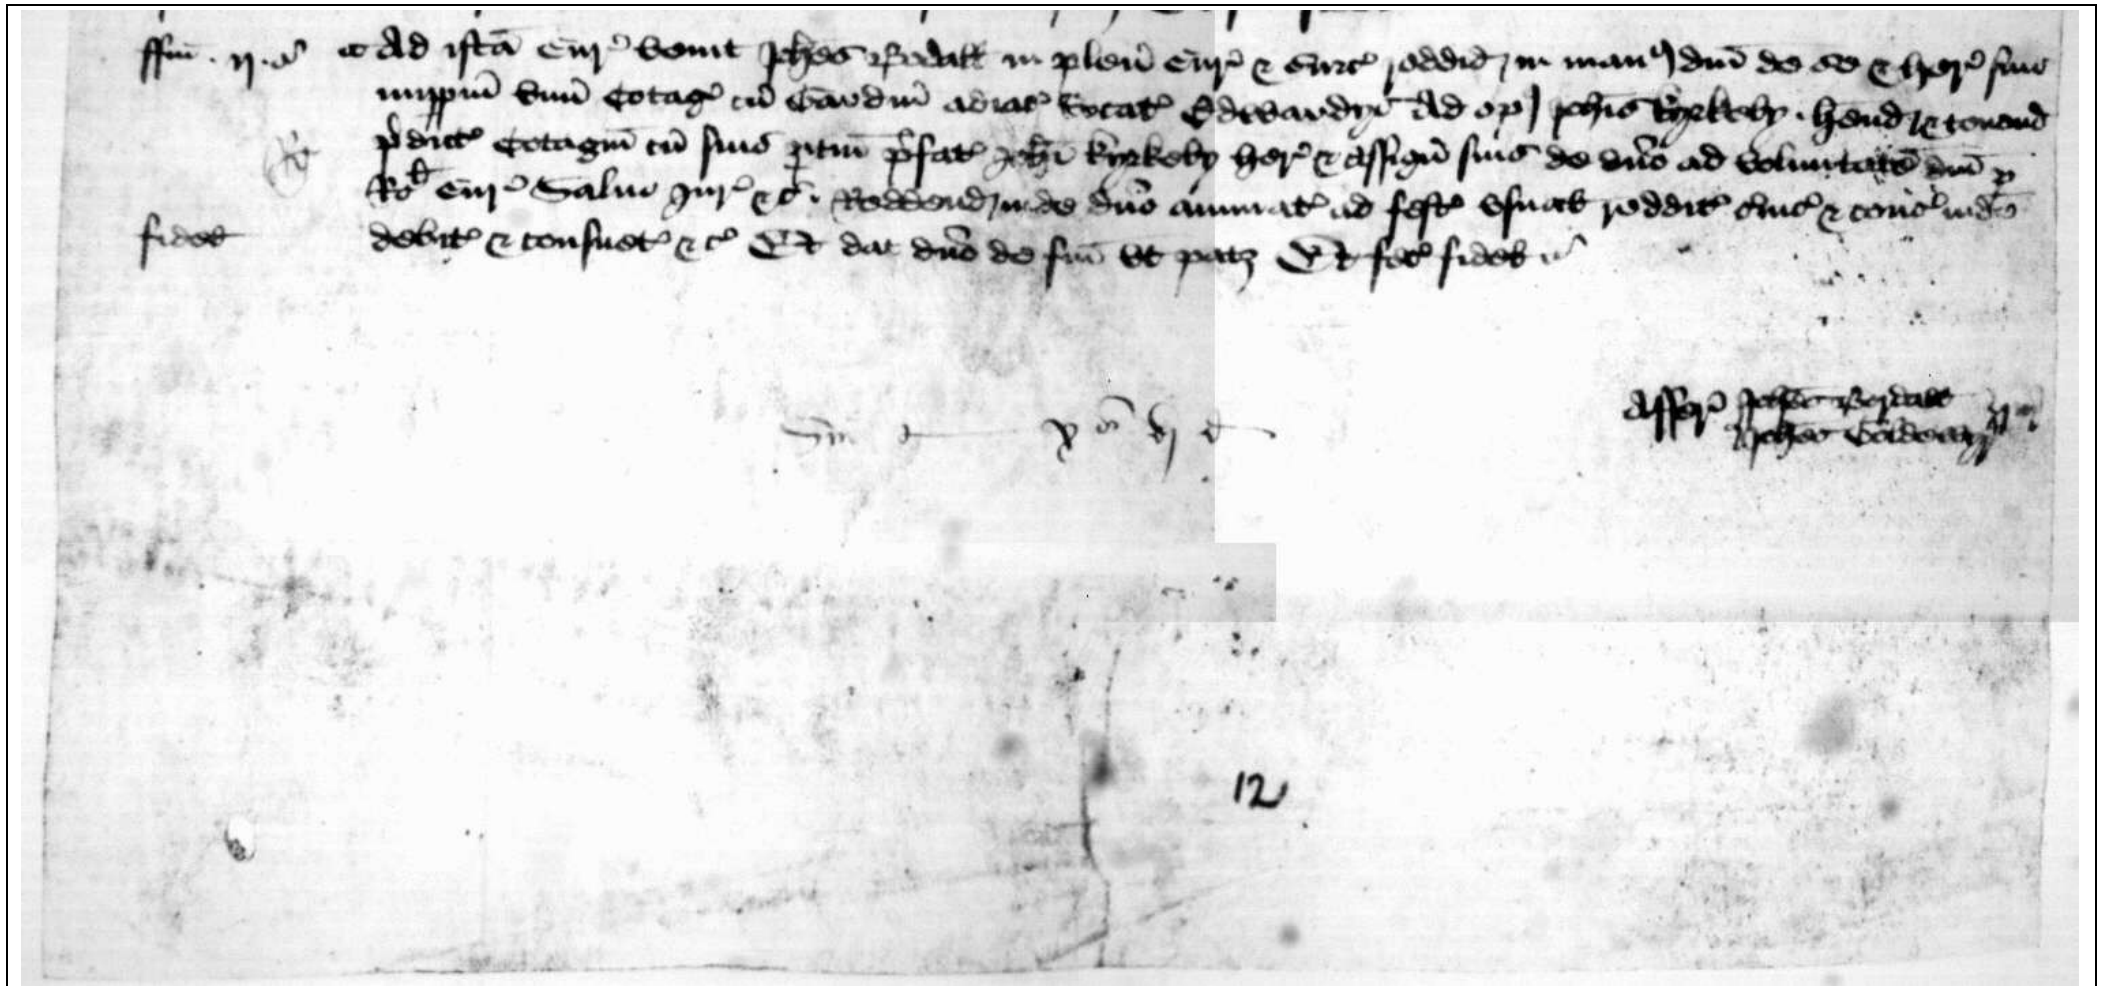 ffin . ij . s Ad istā Cur venit Johes Redall in plen Cur & surs reddid in man dni de se & her suis
imppm vnu Cotag cu Gardin adiac vocat Edwardyn Ad op Johis kyrkeby . hend & tenend
pdict Cotagiu cu suis ptin pfat Johi kyrkeby her & Assign suis de dno ad voluntate dni p
Ro Cur Saluo Jur & c . Reddend inde dno annuat ad fest vsual reddit suic & cons inde
fidel debit & consuet & c Et dat dno de fin vt patz Et fec fidel
Affer Johes
Sm x s vj d
Johes
12